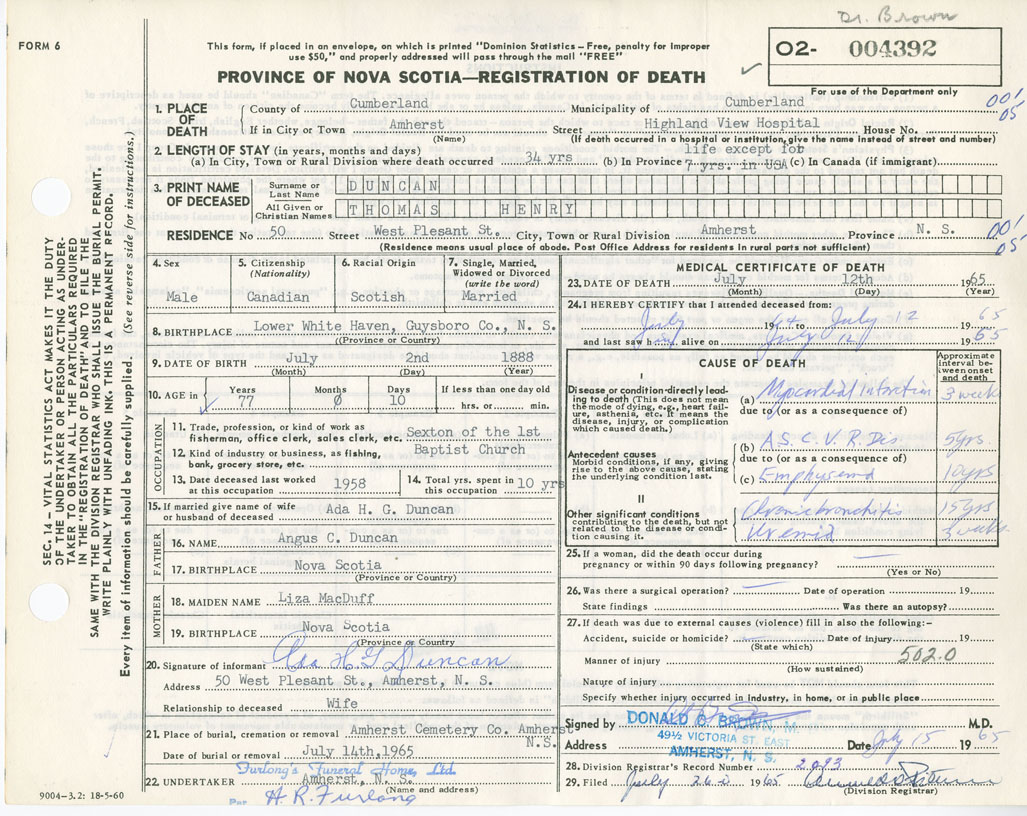 Dr. Brown
FORM 6
This form, if placed in an envelope, on which is printed "Dominion Statistics – Free, penalty for improper
use $50," and properly addressed will pass through the mail "FREE"
PROVINCE OF NOVA SCOTIA—REGISTRATION OF DEATH
O2- 004392
For use of the Department only
001
05
1. PLACE OF DEATH
County of Cumberland Municipality of Cumberland
If in City or Town Amherst Street Highland View Hospital House No.
(Name) (If death occurred in a hospital or institution, give the name instead of street and number)
2. LENGTH OF STAY (in years, months and days) life except fob
(a) In City, Town or Rural Division where death occurred 34 yrs (b) In Province 7 yrs. in USA (c) In Canada (if immigrant)
3. PRINT NAME OF DECEASED
Surname or Last Name DUNCAN
All Given or Christian Names THOMAS HENRY
RESIDENCE No 50 Street West Plesant St. City, Town or Rural Division Amherst Province N. S.
001
05
(Residence means usual place of abode. Post Office Address for residents in rural parts not sufficient)
4. Sex
Male
5. Citizenship (Nationality)
Canadian
6. Racial Origin
Scotish
7. Single, Married, Widowed or Divorced (write the word)
Married
8. BIRTHPLACE Lower White Haven, Guysboro Co., N. S.
(Province or Country)
9. DATE OF BIRTH July 2nd 1888
(Month) (Day) (Year)
10. AGE in Years Months Days If less than one day old
77 0 10 hrs. or min.
OCCUPATION
11. Trade, profession, or kind of work as
fisherman, office clerk, sales clerk, etc. Sexton of the 1st
12. Kind of industry or business, as fishing, Baptist Church
bank, grocery store, etc.
13. Date deceased last worked
at this occupation 1958
14. Total yrs. spent in
this occupation 10 yrs
15. If married give name of wife
or husband of deceased Ada H. G. Duncan
FATHER
16. NAME Angus C. Duncan
17. BIRTHPLACE Nova Scotia
(Province or Country)
MOTHER
18. MAIDEN NAME Liza MacDuff
19. BIRTHPLACE Nova Scotia
(Province or Country
20. Signature of informant Ada H G Duncan
Address 50 West Plesant St., Amherst, N. S.
Relationship to deceased Wife
21. Place of burial, cremation or removal Amherst Cemetery Co. Amherst
N.S.
Date of burial or removal July 14th, 1965
Furlong's Funeral Home, Ltd.
22. UNDERTAKER Amherst, N. S.
(Name and address)
Per H. R. Furlong
9004-3.2: 18-5-60
MEDICAL CERTIFICATE OF DEATH
23. DATE OF DEATH July 12th 1965
(Month) (Day) (Year)
24. I HEREBY CERTIFY that I attended deceased from:
July 1964 to July 12 1965
and last saw h alive on July 12 1965
CAUSE OF DEATH
Approximate interval between onset and death
I
Disease or condition directly leading
to death (This does not mean
the mode of dying, e.g., heart failure,
asthenia, etc. It means the
disease, injury, or complication
which caused death.)
(a) Myocardial Infarction 3 weeks
due to (or as a consequence of)
Antecedent causes
Morbid conditions, if any, giving
rise to the above cause, stating
the underlying condition last.
(b) A.S.C.V.R. Dis 5yrs.
due to (or as a consequence of)
(c) Emphysema 10yrs
II
Other significant conditions
contributing to the death, but not
related to the disease or condition
causing it.
Chronic bronchitis 15yrs
Uremia 3 weeks
25. If a woman, did the death occur during
pregnancy or within 90 days following pregnancy?
(Yes or No)
26. Was there a surgical operation? Date of operation 19
State findings Was there an autopsy?
27. If death was due to external causes (violence) fill in also the following:–
Accident, suicide or homicide? Date of injury 19
(State which)
Manner of injury 502.0
(How sustained)
Nature of injury
Specify whether injury occurred in industry, in home, or in public place
Signed by DONALD B. BROWN, M. M.D.
49½ VICTORIA ST. EAST
AMHERST, N. S.
Address Date July 15 1965
28. Division Registrar's Record Number 2093
29. Filed July 26 1965
(Division Registrar)
SEC. 14 – VITAL STATISTICS ACT MAKES IT THE DUTY
OF THE UNDERTAKER OR PERSON ACTING AS UNDER-
TAKER TO OBTAIN ALL THE PARTICULARS REQUIRED
IN THE "REGISTRATION OF DEATH" AND TO FILE THE
SAME WITH THE DIVISION REGISTRAR WHO SHALL ISSUE THE BURIAL PERMIT.
WRITE PLAINLY WITH UNFADING INK. THIS IS A PERMANENT RECORD.
Every item of information should be carefully supplied. (See reverse side for instructions.)